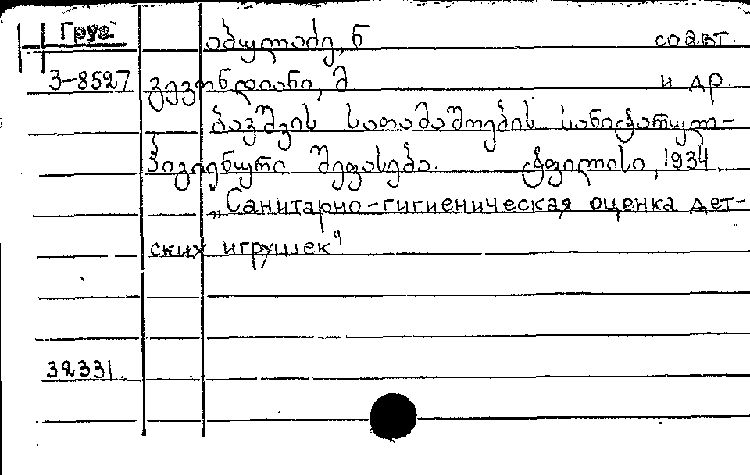 Груз
აბულაძე, ნ соавт.
3-8527 გევონდიანი, მ и др
ბავშვის სათამაშოების სანიტარულ-
ჰიგიენური შეფასება. ტფილისი, 1934
„Санитарно-гигиеническая оценка дет-
ских игрушек"
32331